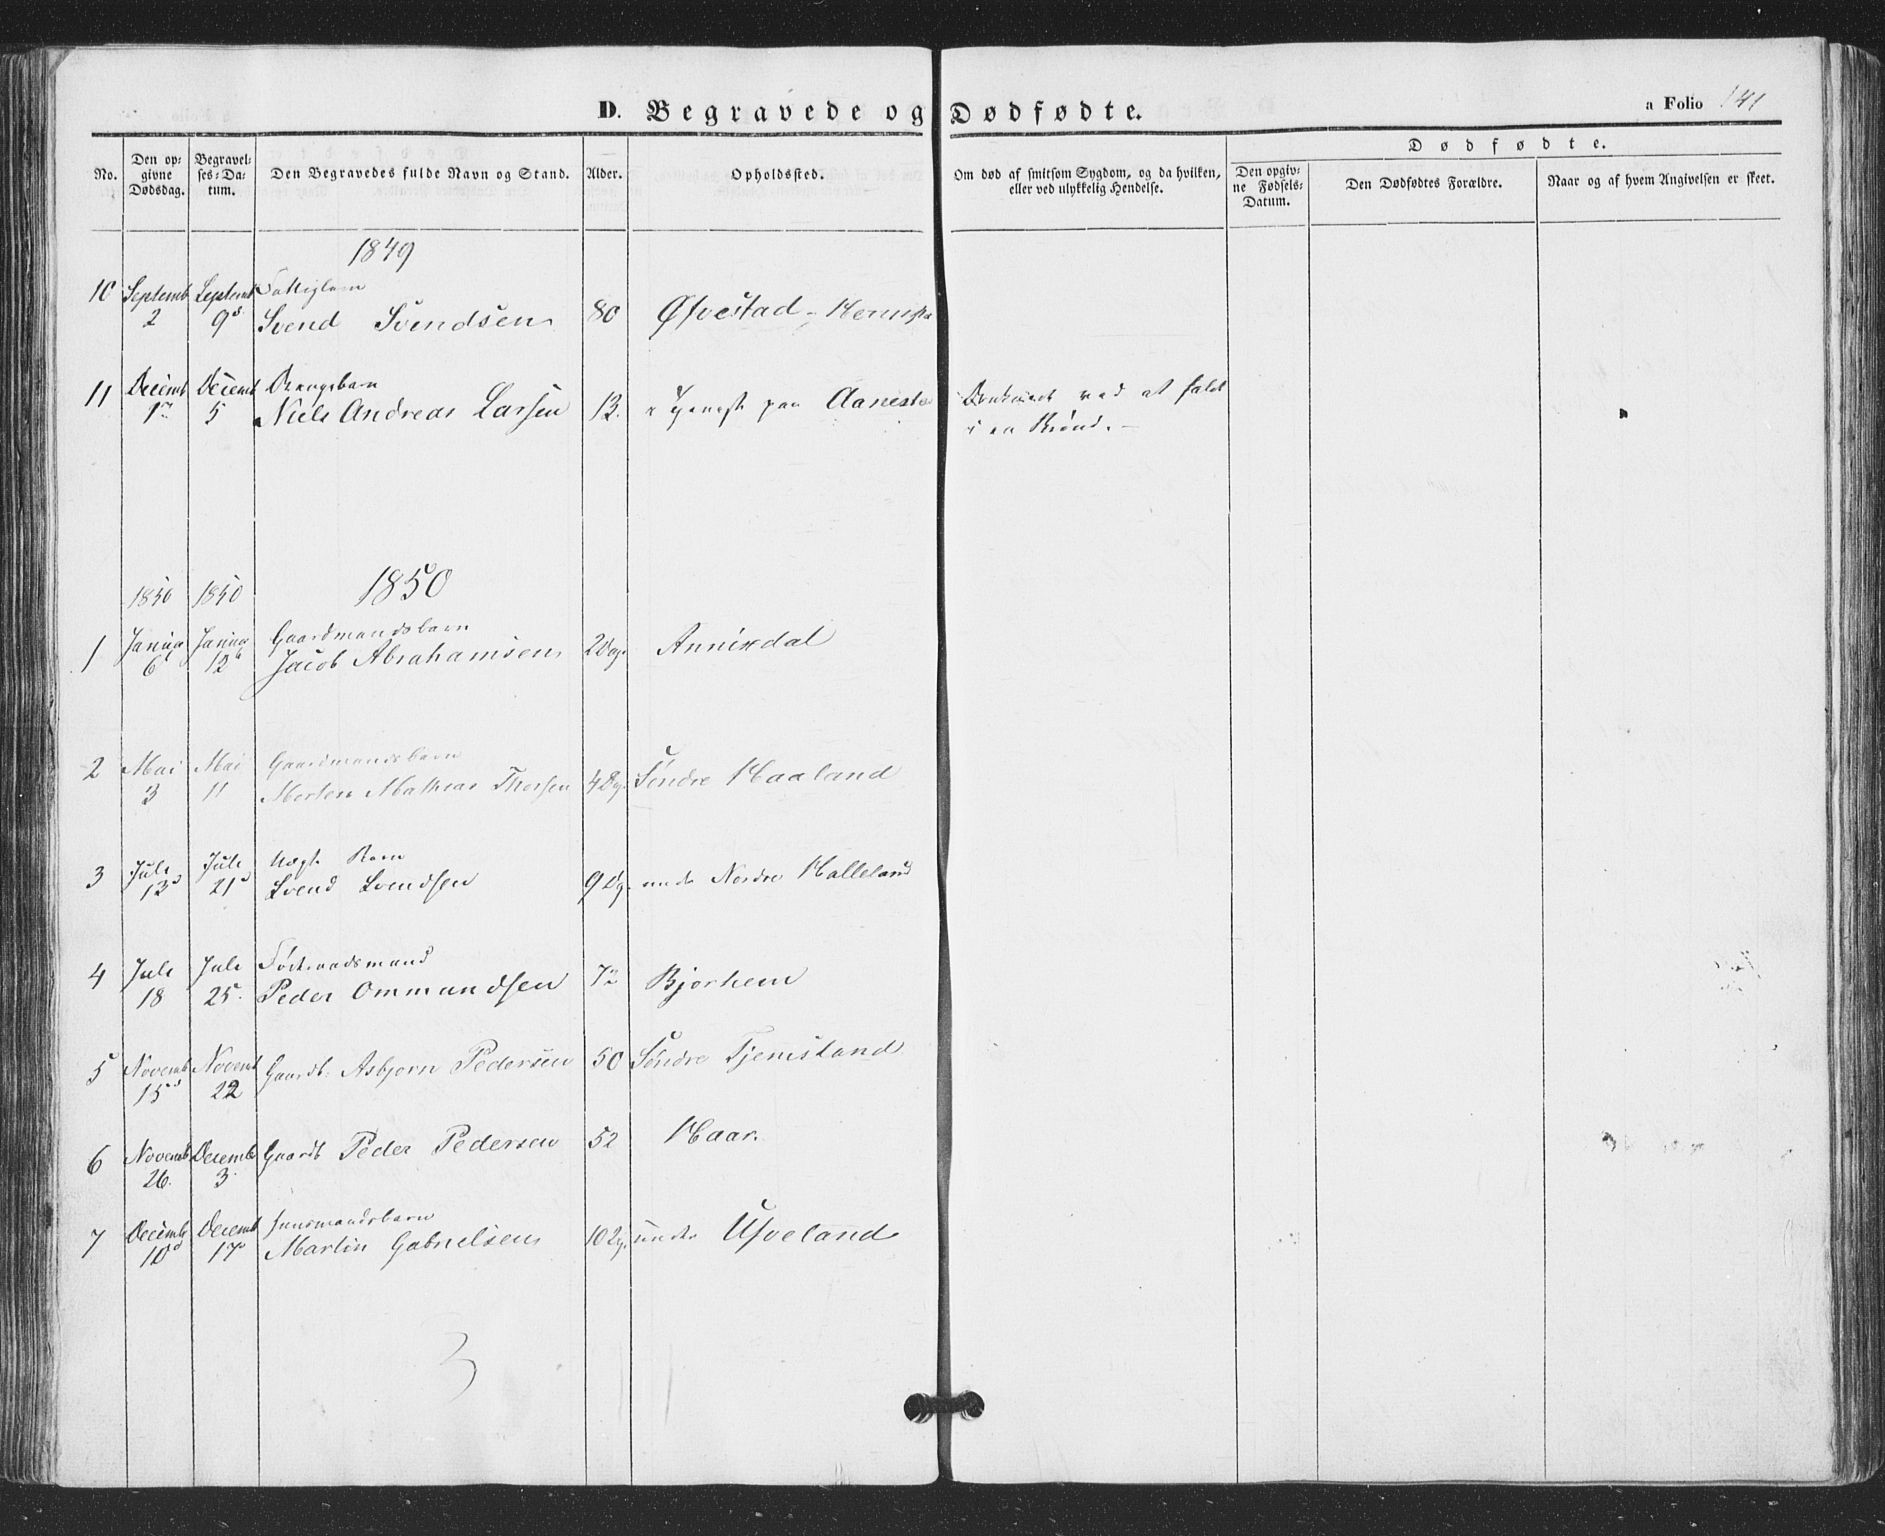 D. Begravede og Dødfødte.
a Folio 141
No.
Den op=
givne
Dødsdag.
Begravel=
ses=Da=
tum.
Den Begravedes fulde Navn og Stand.
Alder.
Opholdssted.
Om død af smitsom Sygdom, og da hvilken,
eller ved ulykkelig Hendelse.
Dødfødte.
Den opgiv=
ne Fødsels=
Datum.
Den Dødfødtes Forældre.
Naar og af hvem Angivelsen er skeet.
1849
10 Septemb Septemb Fattiglem
2 9 Svend Svendsen 80 Øfvestad
11 Decemb Decemb Drengebarn
1 5 Niels Andreas Larsen 13. i Tjeneste paa Aanestad Druknede ved at falde
i en Brønd.
1850 1850 1850
1 Janua Janua Gaardmandsbarn
6 12 Jacob Abrahamsen 2 Dage Annisdal
2 Mai Mai Gaardmandsbarn
3 11 Morten Mathias Thorsen 4 Dg. Søndre Haaland
3 Juli Juli Uægte Barn
13 21 Svend Svendsen 9 Dg. under Nordre Halleland
4 Juli Juli Føderaadsmand
18 25. Peder Ommundsen 72 Bjorhem
5 Novemb Novemb Gaardb. Asbjorn Pedersen 50 Søndre Tjemsland
15 22
6 Novemb Decemb Gaardb Peder Pedersen 52 Haar.
26. 3.
7 Decemb Decemb Huusmandsbarn
10 17 Martin Gabrielsen 10 Dg. under Ufveland
3